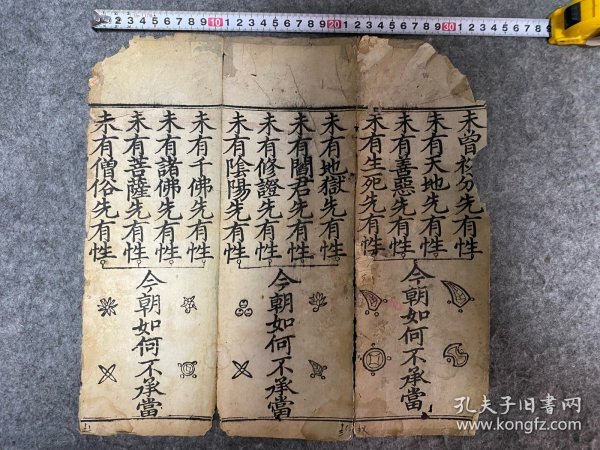 1 2 3 4 5 6 7 8 9 10 1 2 3 4 5 6 7 8 9 20 1 2 3 4 5 6 7 8 9 30 1 2 3 4 5
未曾分先有性
未有天地先有性
未有善惡先有性
未有生死先有性
今朝如何不承當
未有地獄先有性
未有閻君先有性
未有修證先有性
未有陰陽先有性
今朝如何不承當
未有千佛先有性
未有諸佛先有性
未有菩薩先有性
未有僧俗先有性
今朝如何不承當
孔夫子旧书网
www.kongfz.com